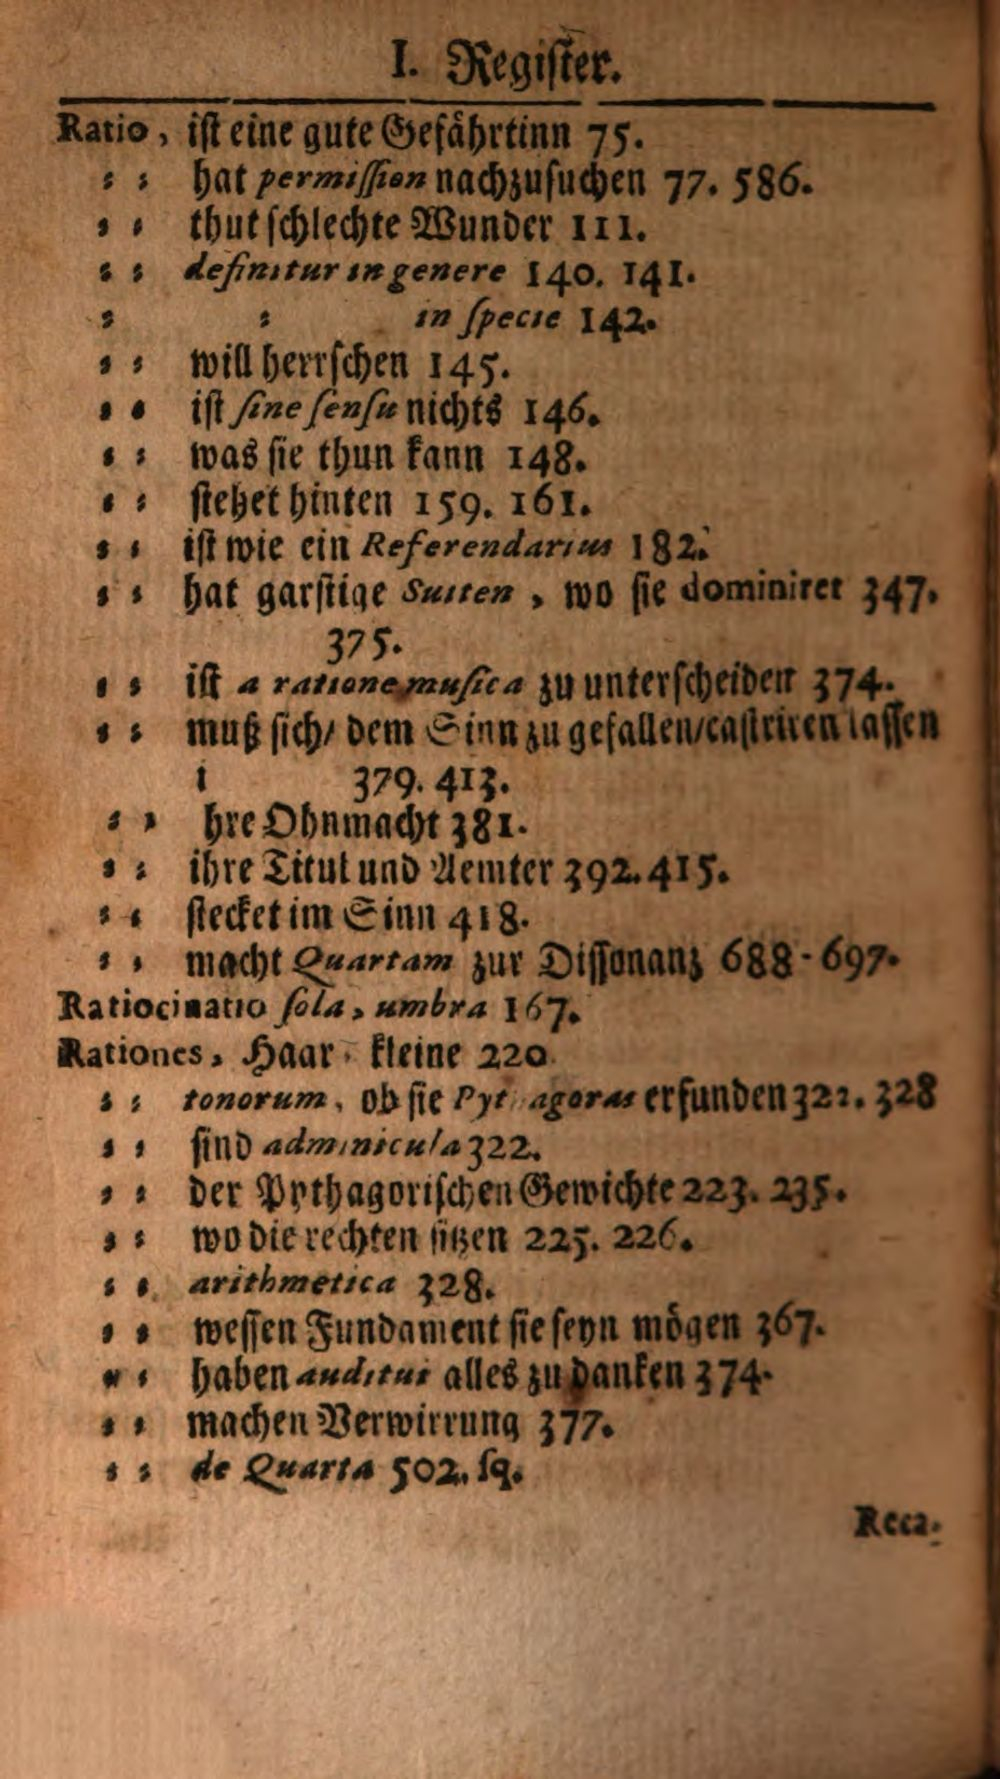 I. Register.
Ratio, ist eine gute Gefährtinn 75.
⸗ ⸗ hat permission nachzusuchen 77. 586.
⸗ ⸗ thut schlechte Wunder 111.
⸗ ⸗ definitur in genere 140. 141.
⸗ ⸗ in specie 142.
⸗ ⸗ will herrschen 145.
⸗ ⸗ ist sine sensu nichts 146.
⸗ ⸗ was sie thun kann 148.
⸗ ⸗ stehet hinten 159. 161.
⸗ ⸗ ist wie ein Referendarius 182.
⸗ ⸗ hat garstige Suiten, wo sie dominiret 347.
375.
⸗ ⸗ ist a ratione musica zu unterscheiden 374.
⸗ ⸗ muß sich/ dem Sinn zu gefallen/castriren lassen
i 379. 413.
⸗ ⸗ hre Ohnmacht 381.
⸗ ⸗ ihre Titul und Aemter 392. 415.
⸗ ⸗ stecket im Sinn 418.
⸗ ⸗ macht Quartam zur Dissonanz 688-697.
Ratiocinatio sola, umbra 167.
Rationes, Haar⸗ kleine 220.
⸗ ⸗ tonorum, ob sie Pyt agoras erfunden 322. 328
⸗ ⸗ sind adminicula 322.
⸗ ⸗ der Pythagorischen Gewichte 223. 235.
⸗ ⸗ wo die rechten sitzen 225. 226.
⸗ ⸗ arithmetica 328.
⸗ ⸗ wessen Fundament sie seyn mögen 367.
⸗ ⸗ haben auditui alles zu danken 374.
⸗ ⸗ machen Verwirrung 377.
⸗ ⸗ de Quarta 502. sq.
Reca-